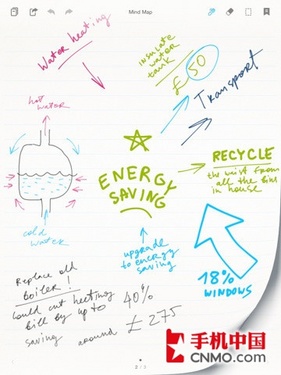 Mind Map
Water heating
insulate
water
tank
£50
Transport
hot
water
ENERGY
SAVING
RECYCLE
all the bins
in house
cold
water
upgrade
to energy
saving
18%
WINDOWS
Replace old
boiler!
Could cut heating
bill by up to 40%
saving around £275
手机中国
CNMO.com